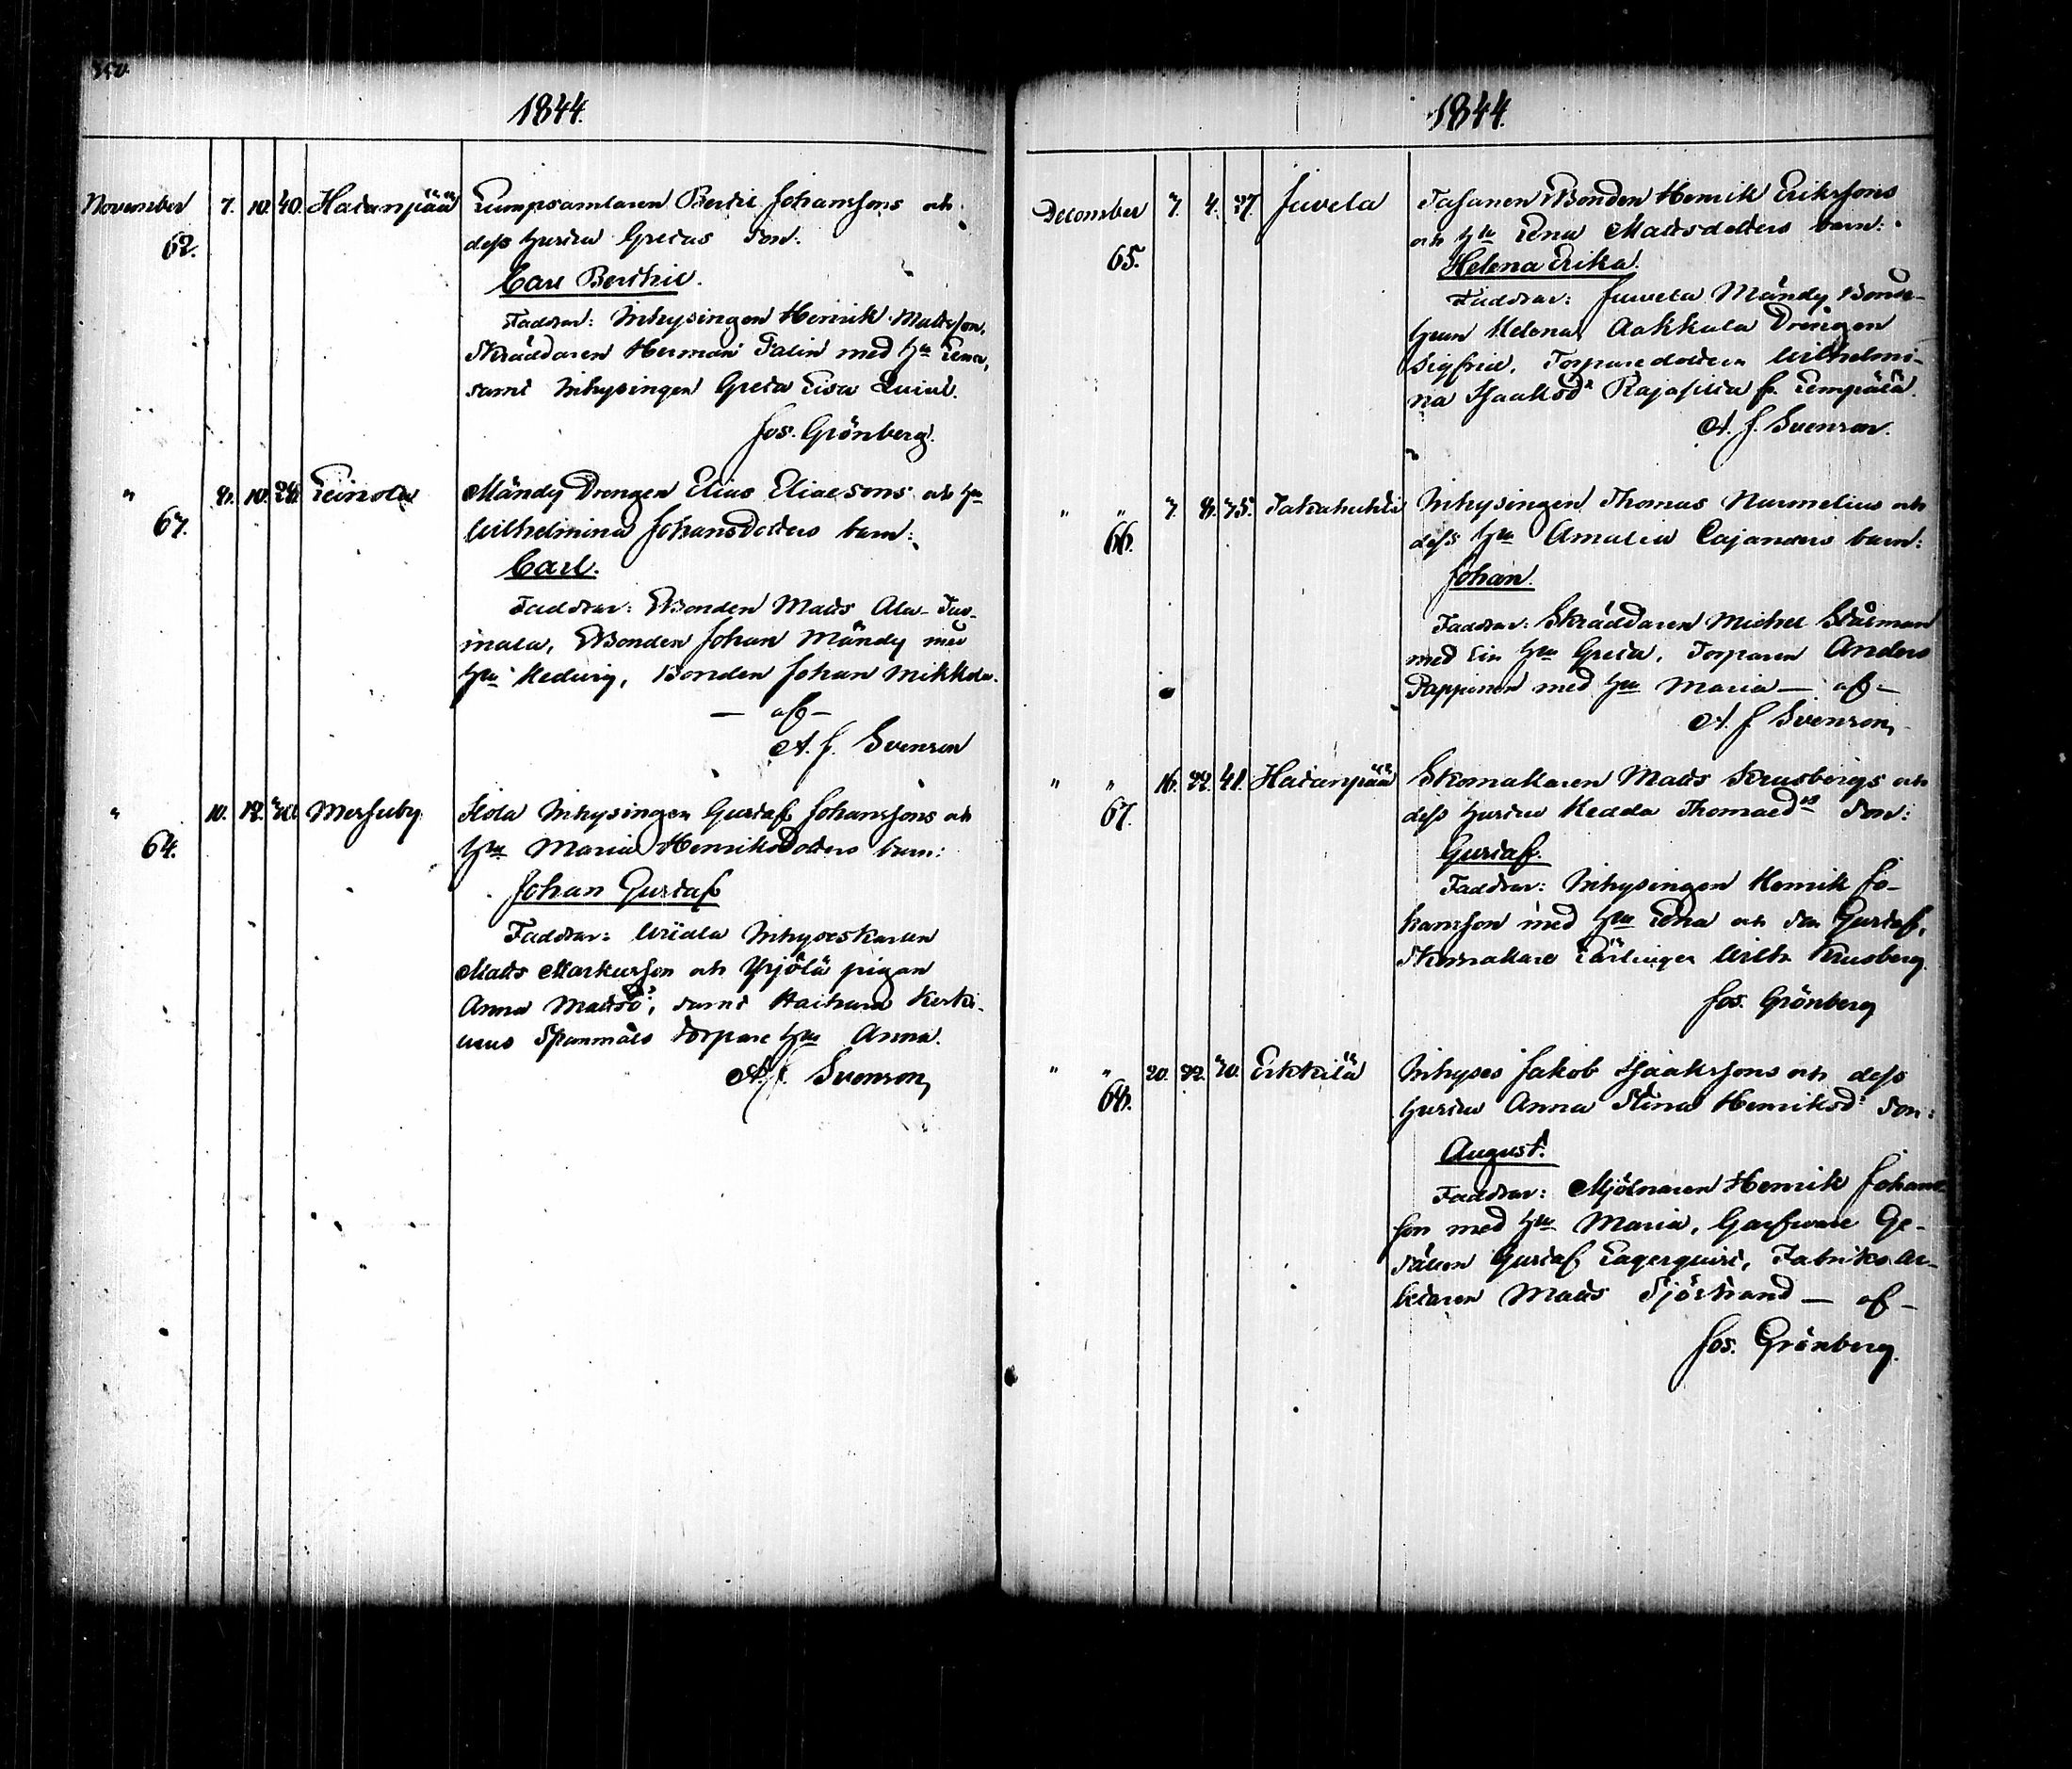 1844.
November 7. 10. 40. Hatanpää Lumpsamlaren Bertil Johanssons och
62. dess hustru Gretas Son:
Carl Berthil.
Faddrar: Inhysingen Henrik Mattsson,
Skräddaren Herman Palin med hu Lena,
samt Inhysingen Greta Lisa Quist.
Jos. Grönberg.
" 8. 10. 28. Leinola Mändy Drengen Elias Eliaesons och hu
63. Wilhelmina Johansdotters barn:
Carl.
Faddrar: Bonden Matts Ala-
Bonden Johan Mändy med
hu Hedvig, Bonden Johan Mikkola.
— af —
A. J. Svenson
" 10. 12. Messuby Inhysingen Gustaf Johanssons och
64. hu Maria Henriksdotters barn:
Johan Gustaf
Faddrar: Inhyseskarlen
Matts Markusson och Yrjölä pigan
Anna Mattsdr, samt Kaihara
Torpare hu Anna.
A. J. Svenson
1844.
December 7. 4. 37. Juvela Bonden Henrik Erikssons
65. och hu Lena Mattsdotters barn:
Helena Erika.
Faddrar: Juvela Mändy Bonde-
hun Helena, Aakkula Drengen
Sigfrid, Torparedottern Wilhelmi-
na Isaaksdr fr. Lempälä.
A. J. Svenson.
" " 7. 8. 35. Takahuhti Inhysingen Thomas Nurmelius och
66. dess hu Amalia Cajanders barn:
Johan.
Faddrar: Skräddaren Michel Stårman
med sin hu Greta, Torparen Anders
Pappinen med hu Maria — af —
A. J. Svenson
" " 16. 22. 41. Hatanpää Skomakaren Matts Krusbergs och
67. dess hustru Hedda Thomaedrs Son:
Gustaf.
Faddrar: Inhysingen Henrik Jo-
hansson med hu Lena och Son Gustaf,
Skomakare Lärlingen Wilh. Krusberg.
Jos. Grönberg
" " 20. 22. 30. Erkkilä Inhyses Jakob Isaakssons och dess
68. hustru Anna Stina Henriksdr Son:
August.
Faddrar: Mjölnaren Henrik Johans-
son med hu Maria, Garfvare Ge-
sällen Gustaf Lagerqvist, Fabriks Ar-
betaren Matts Sjöstrand — af —
Jos. Grönberg.